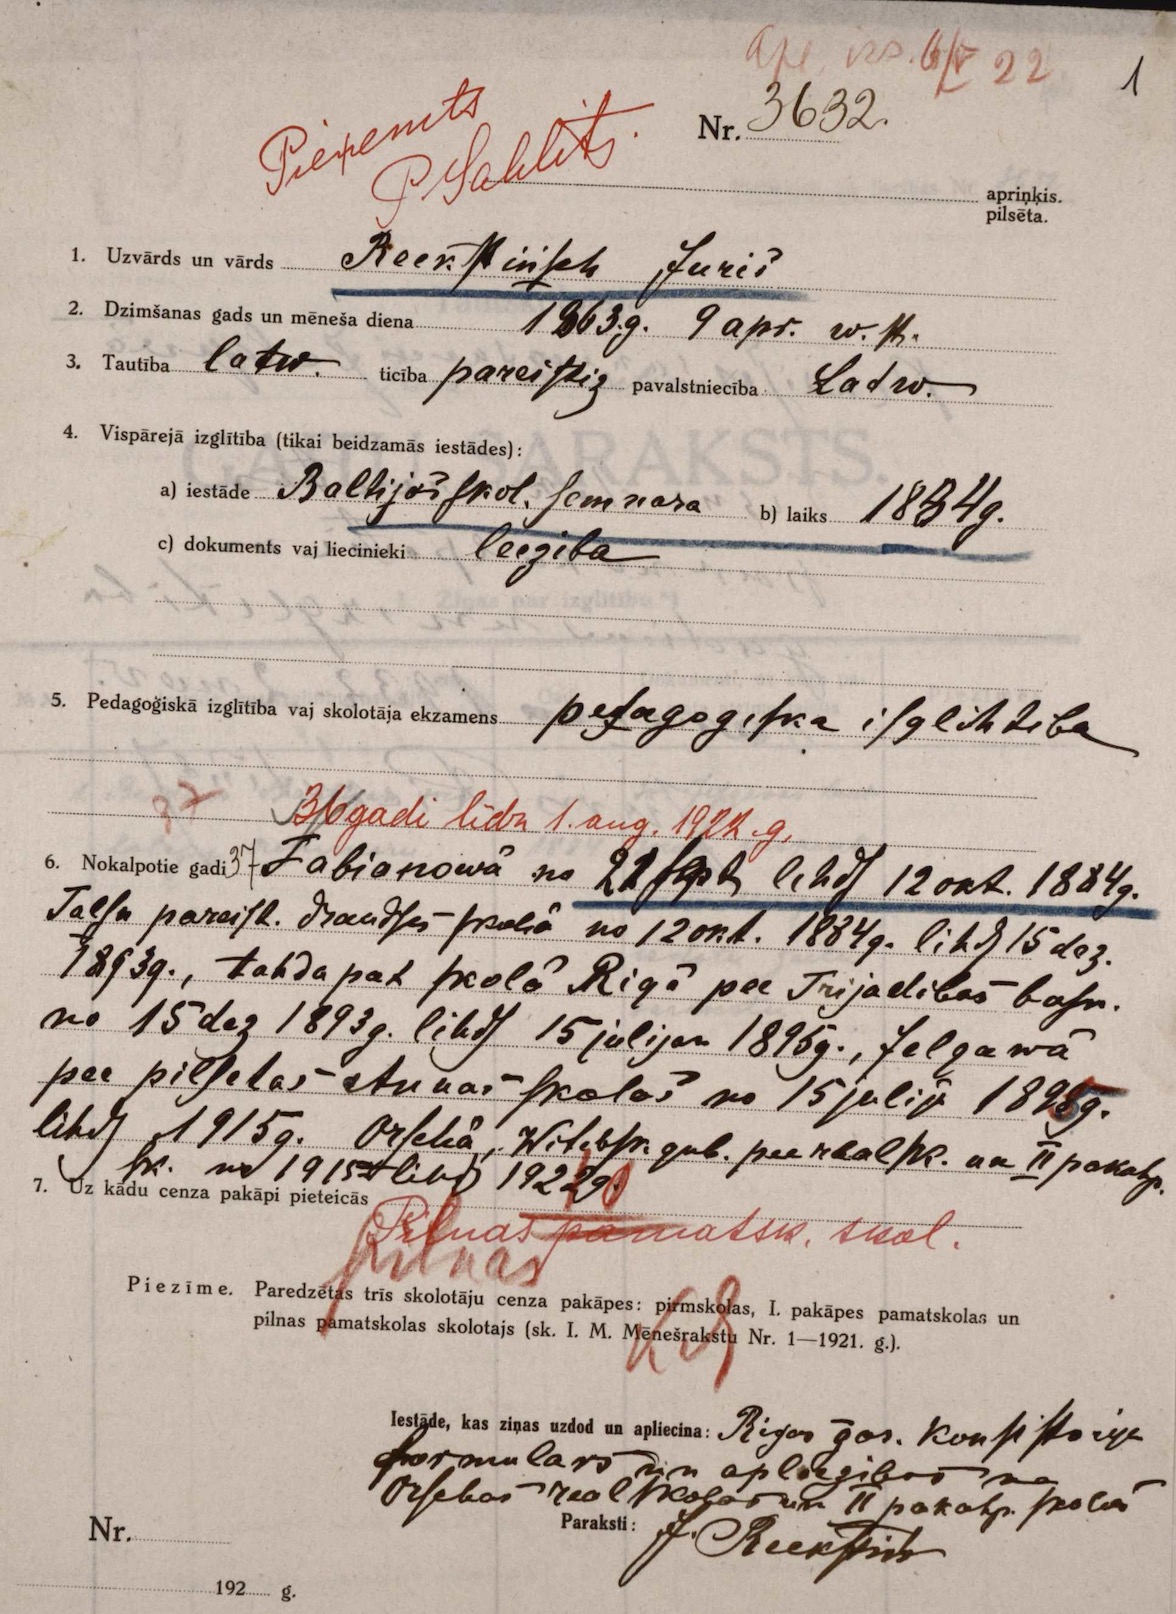 Apl. izs. 6/V 22
1
Pieņemts
P. Sahlits.
Nr. 3632.
apriņķis.
pilsēta.
1. Uzvārds un vārds Reekstiņsch Juris
2. Dzimšanas gads un mēneša diena 1863.g. 9 apr. w. st.
3. Tautība latw. ticība pareistiz pavalstniecība Latw.
4. Vispārejā izglītība (tikai beidzamās iestādes):
a) iestāde Baltijas skol. seminara b) laiks 1884g.
c) dokuments vaj liecinieki leeziba
5. Pedagoģiskā izglītība vaj skolotāja ekzamens pedagogiska isglihtiba
37
36 gadi līdz 1. aug. 1922. g.
6. Nokalpotie gadi 37 Fabianowā no 21 sept lihds 12 okt. 1884g.
Talsu pareist. draudses skolā no 12 okt. 1884g. lihds 15 dez.
1893g., tahda pat skolā Rigā pee Trijadibas basn.
no 15 dez 1893g. lihds 15 julijam 1895g., Jelgawā
pee pilsetas Annas skolas no 15 julija 1895g.
lihds 1915g. Orschā, Witebsk. gub. pee realsk. un II pakahp.
sk. no 1915 lihds 1922g.
7. Uz kādu cenza pakāpi pieteicās
Pilnas pamatsk. skol.
pilnas
Piezīme. Paredzētas trīs skolotāju cenza pakāpes: pirmskolas, I. pakāpes pamatskolas un
pilnas pamatskolas skolotajs (sk. I. M. Mēnešrakstu Nr. 1—1921. g.).
Iestāde, kas ziņas uzdod un apliecina: Rigas gar. konsistorija
formulars un apleezibas no
Orschas realskolas un II pakahp. skolas
Paraksti: J. Reekstiņ
Nr.
192 g.